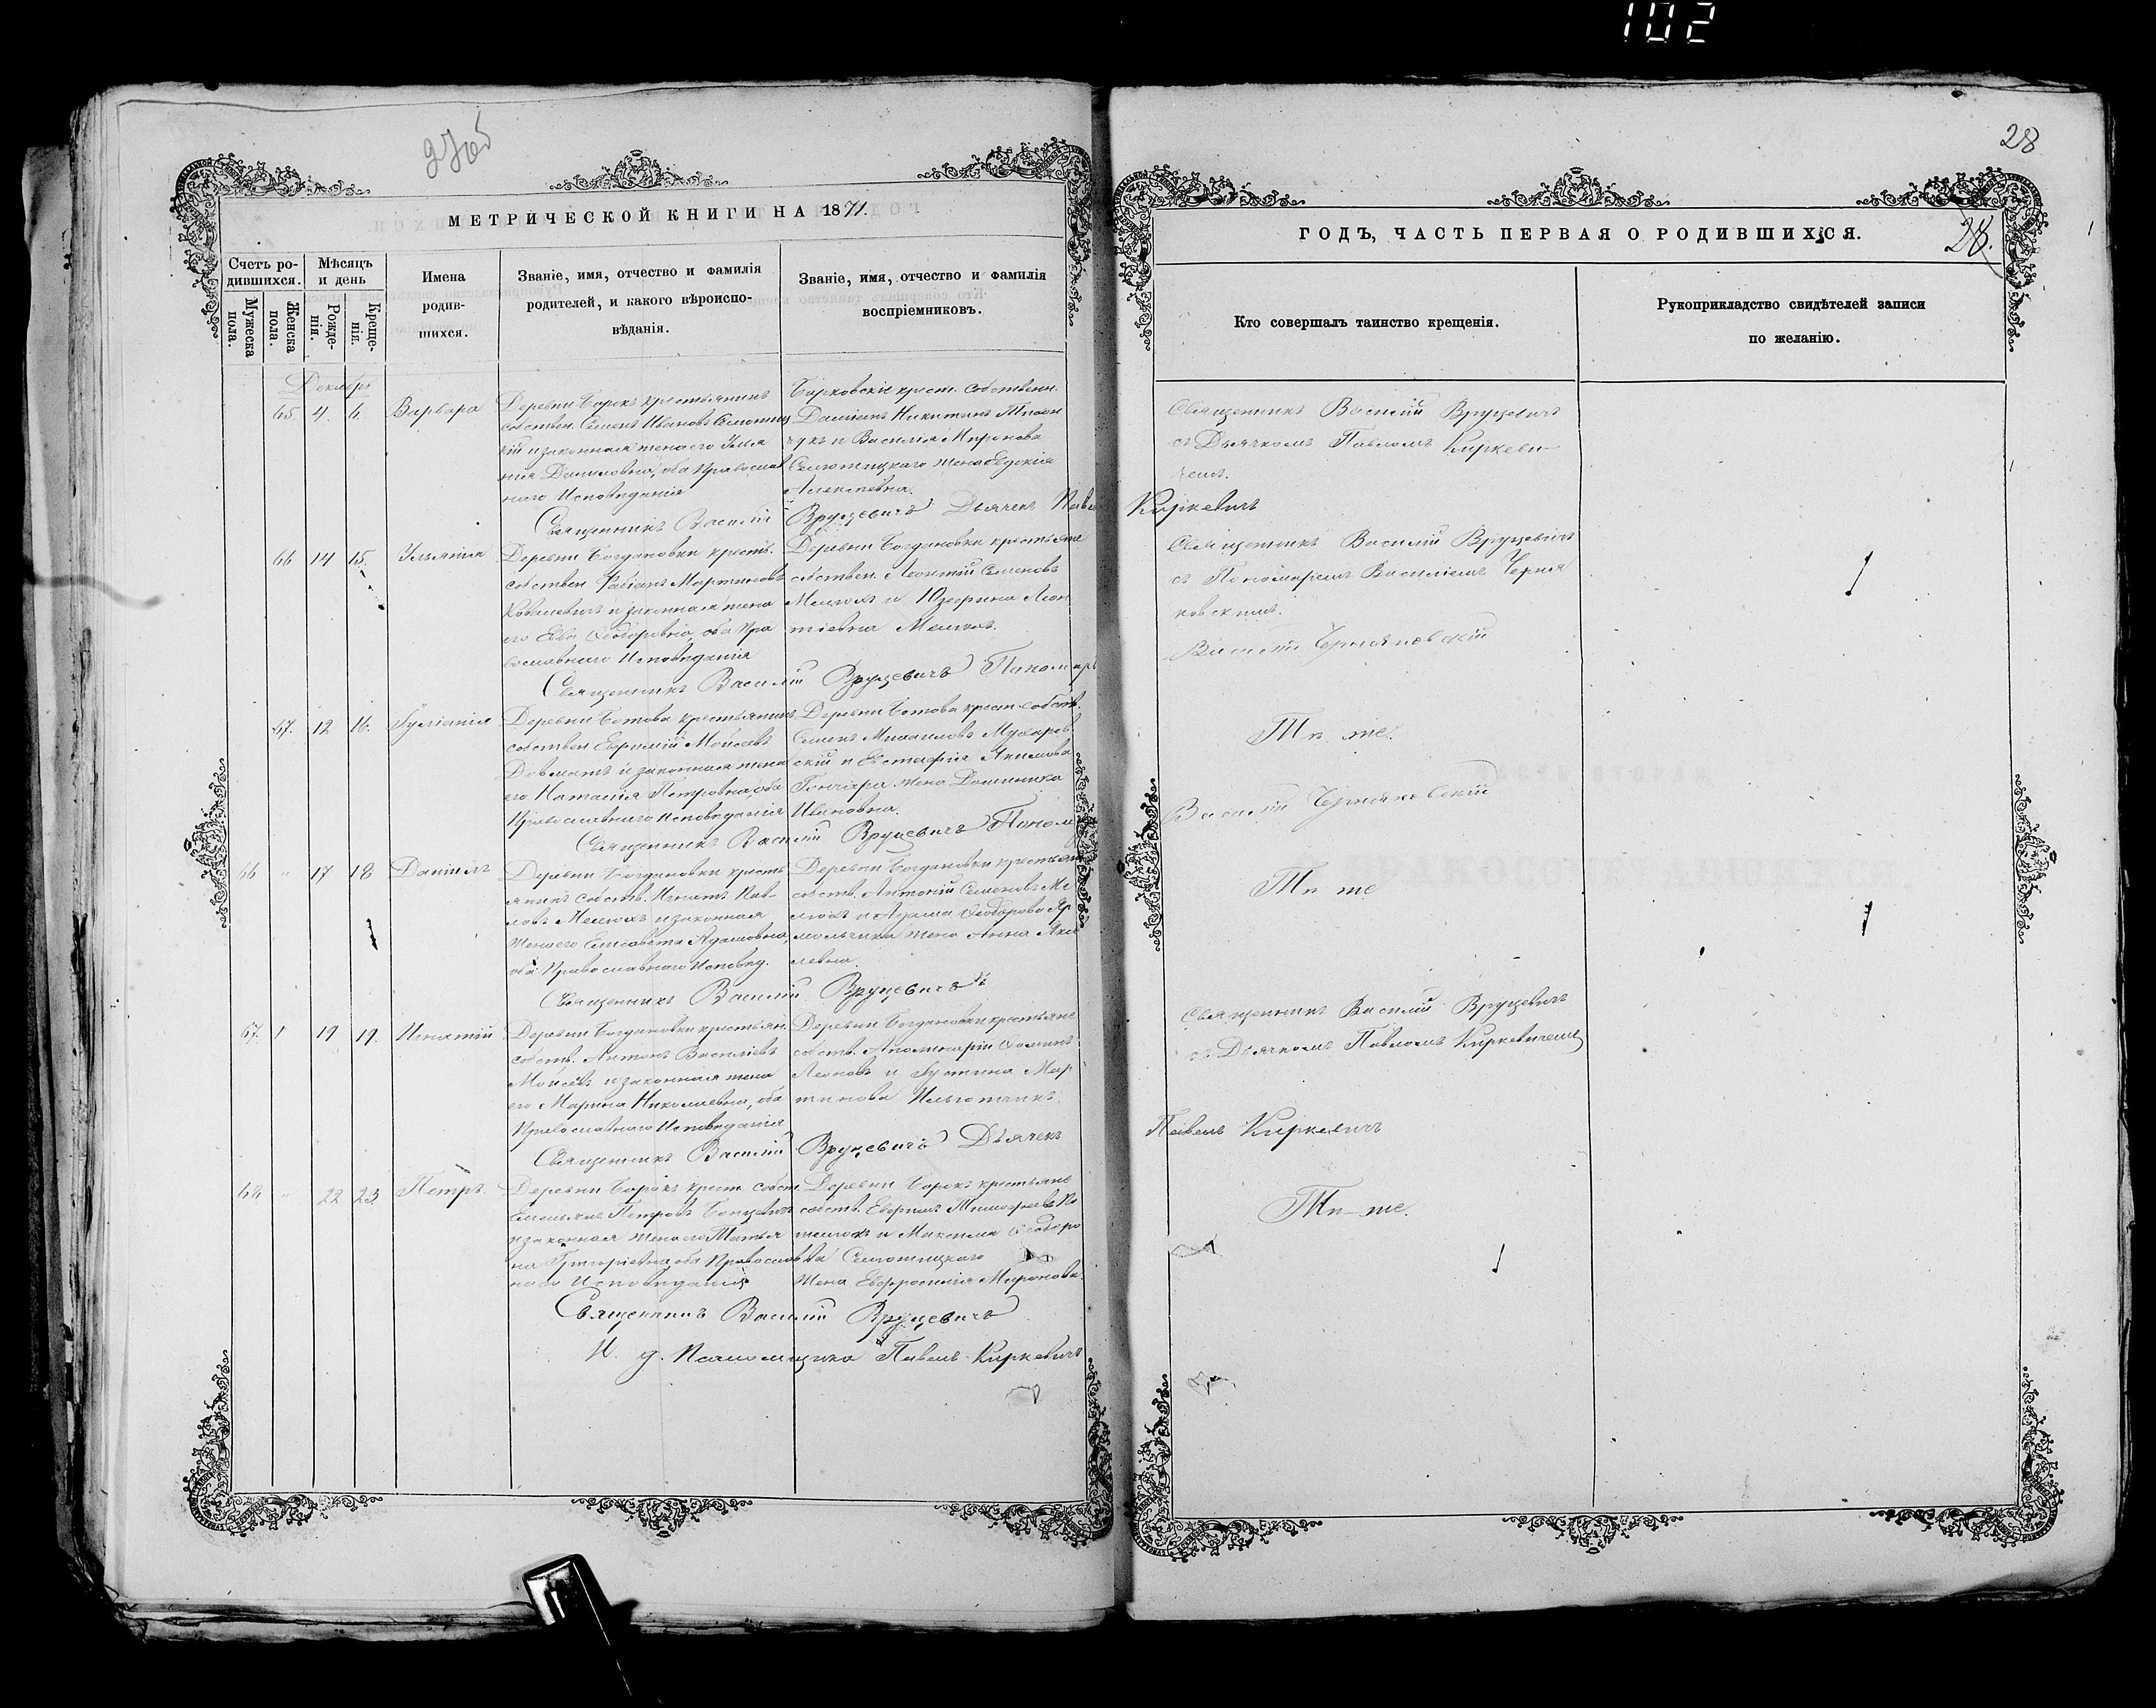 102
27об
МЕТРИЧЕСКОЙ КНИГИ НА 1871.
Счетъ ро-
дившихся.
Мужеска
пола.
Женска
пола.
Мѣсяцъ
и день
Рожде-
нія.
Креще-
нія.
Имена
родив-
шихся.
Званіе, имя, отчество и фамилія
родителей, и какого вѣроиспо-
вѣданія.
Званіе, имя, отчество и фамилія
воспріемниковъ.
Декабрь
65. 4. 6. Варвара
Деревни Борокъ крестьянинъ
собствен. Семенъ Ивановъ
кій и законная жена его
Даниловна, оба Православ
наго Исповѣданія
Борковскіе крест. собствен.
Даміанъ Никитинъ
и Василія Миронова
Семотицкаго жена Евдокія
Алексѣевна.
Священникъ Василій Вруцевичъ Дьячекъ Павелъ
66 14 15. Ульянія
Деревни Богдановки крестьян.
собствен. Фабіанъ Мартиновъ
Ковалевичъ и законная жена
его Ева Ѳеодоровна, оба Пра
вославнаго Исповѣданія
Деревни Богдановки крестьяне
собствен. Леонтій Семеновъ
Мелюхъ и Юзефина Леон
тіевна Мелюхъ.
Священникъ Василій Вруцевичъ Пономарь
67. 12 16. Іуліанія
Деревни Ботова крестьянинъ
собствен. Евфимій Моисеевъ
Довматъ и законная жена
его Наталія Петровна, оба
Православнаго Исповѣданія
Деревни Ботова крест. собств.
Семенъ Михаиловъ
скій и Евстафія Якимова
Гончара жена Доминика
Ивановна.
Священникъ Василій Вруцевичъ Поном
66 " 17 18 Даніилъ
Деревни Богдановки кресть
янинъ собств. Игнатъ Пав-
ловъ Мелюхъ и законная
жена его Елисавета Адамовна,
оба Православнаго Исповѣд.
Деревни Богдановки крестьян
собств. Антоній Семеновъ Ме
люхъ и Адама Ѳеодорова Яр
жена Анна
Священникъ Василій Вруцевичъ
67. 19 19. Игнатій
Деревни Богдановки крестьян.
собств. Антонъ Василіевъ
Моисѣевъ и законная жена
его Марина Николаевна, оба
Православнаго Исповѣданія
Деревни Богдановки крестьяне
собств. Аполинарій Ѳоминъ
Леоновъ и Іустина Мар
тинова
Священникъ Василій Вруцевичъ Дьячекъ
68 " 22 23 Петръ.
Деревни Борокъ крест. собст.
Емельянъ Петровъ
и законная жена его Татья
на Григоріевна, оба Православ
наго Исповѣданія
Деревни Борокъ крестьяне
собств. Ефремъ Тимофеевъ
и Максима Ѳеодоро
ва Семотицкаго
жена Евфросинія Миронова.
Священникъ Василій Вруцевичъ
И. д. Псаломщика Павелъ Киркевичъ
28
28.
ГОДЪ, ЧАСТЬ ПЕРВАЯ О РОДИВШИХСЯ.
Кто совершалъ таинство крещенія.
Рукоприкладство свидѣтелей записи
по желанію.
Священникъ Василій Вруцевичъ
съ Дьячкомъ Павломъ Киркеви-
чемъ.
Киркевичъ
Священникъ Василій Вруцевичъ
съ Пономаремъ Василіемъ Черня
ковскимъ.
Василій Черняковскій
Тѣ же.
Василій Черняковскій
Тѣ же
Священникъ Василій Вруцевичъ
съ Дьячкомъ Павломъ Киркевичемъ
Павелъ Киркевичъ
Тѣ-же.